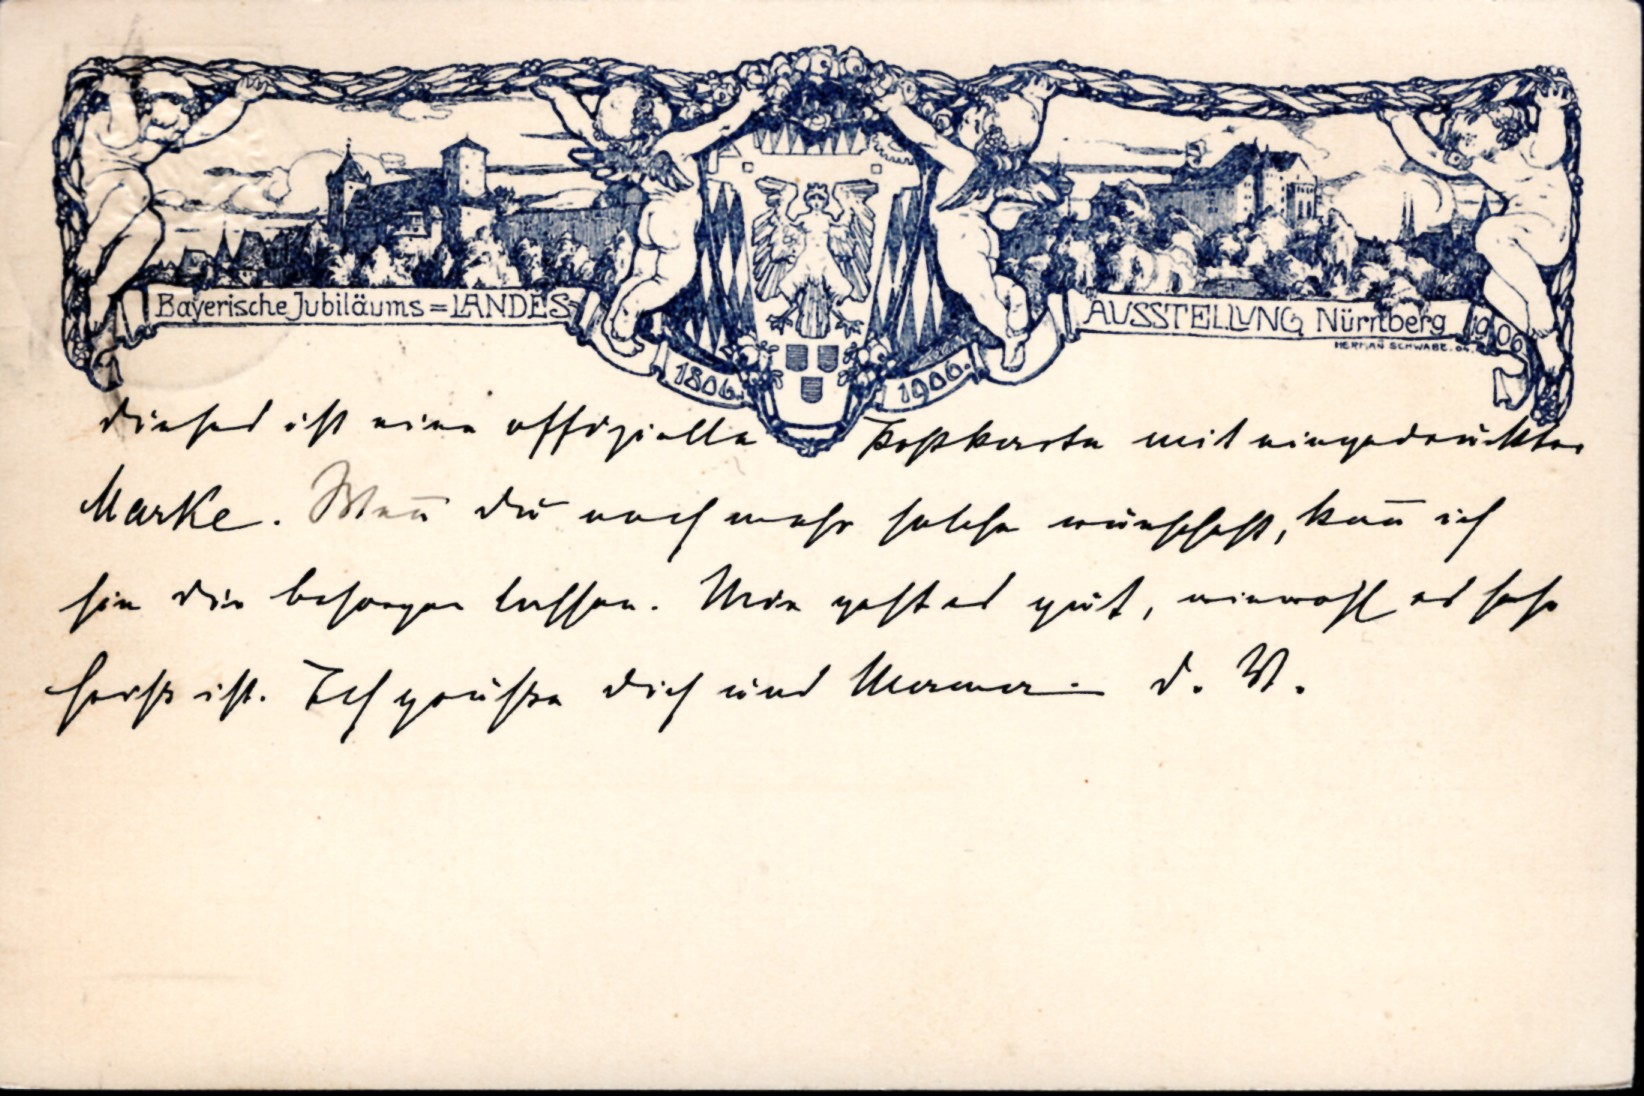 Bayerische Jubiläums=LANDES
AUSSTELLUNG Nürnberg 1906
HERMAN SCHWABE.
1806. 1906.
dieses ist eine offizielle Postkarte mit eingedruckter
Marke. Wen̄ du noch mehr solche wünschest, kan̄ ich
sie dir besorgen lassen. Mir geht es gut, wiewohl es sehr
heiß ist. Ich grüße dich und Mama. d. V.